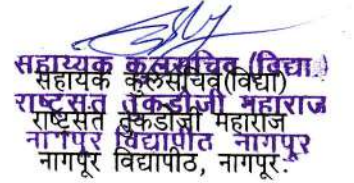 सहाय्यक कुलसचिव (विद्या)
सहायक कुलसचिव(विद्या)
राष्ट्रसंत तुकडोजी महाराज
राष्ट्रसंत तुकडोजी महाराज
नागपूर विद्यापीठ नागपूर
नागपूर विद्यापीठ, नागपूर.